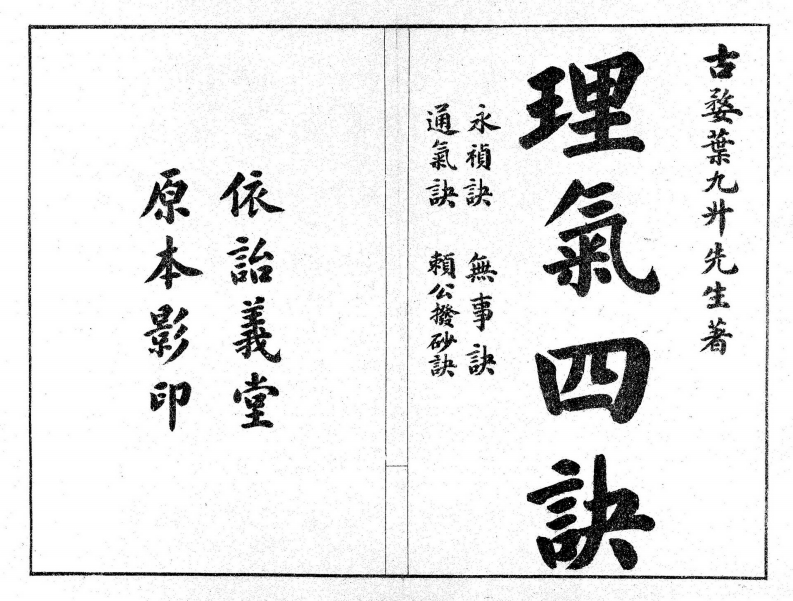 古婺葉九升先生著
理氣四訣
永禎訣 無事訣
通氣訣 賴公撥砂訣
依詒義堂
原本影印